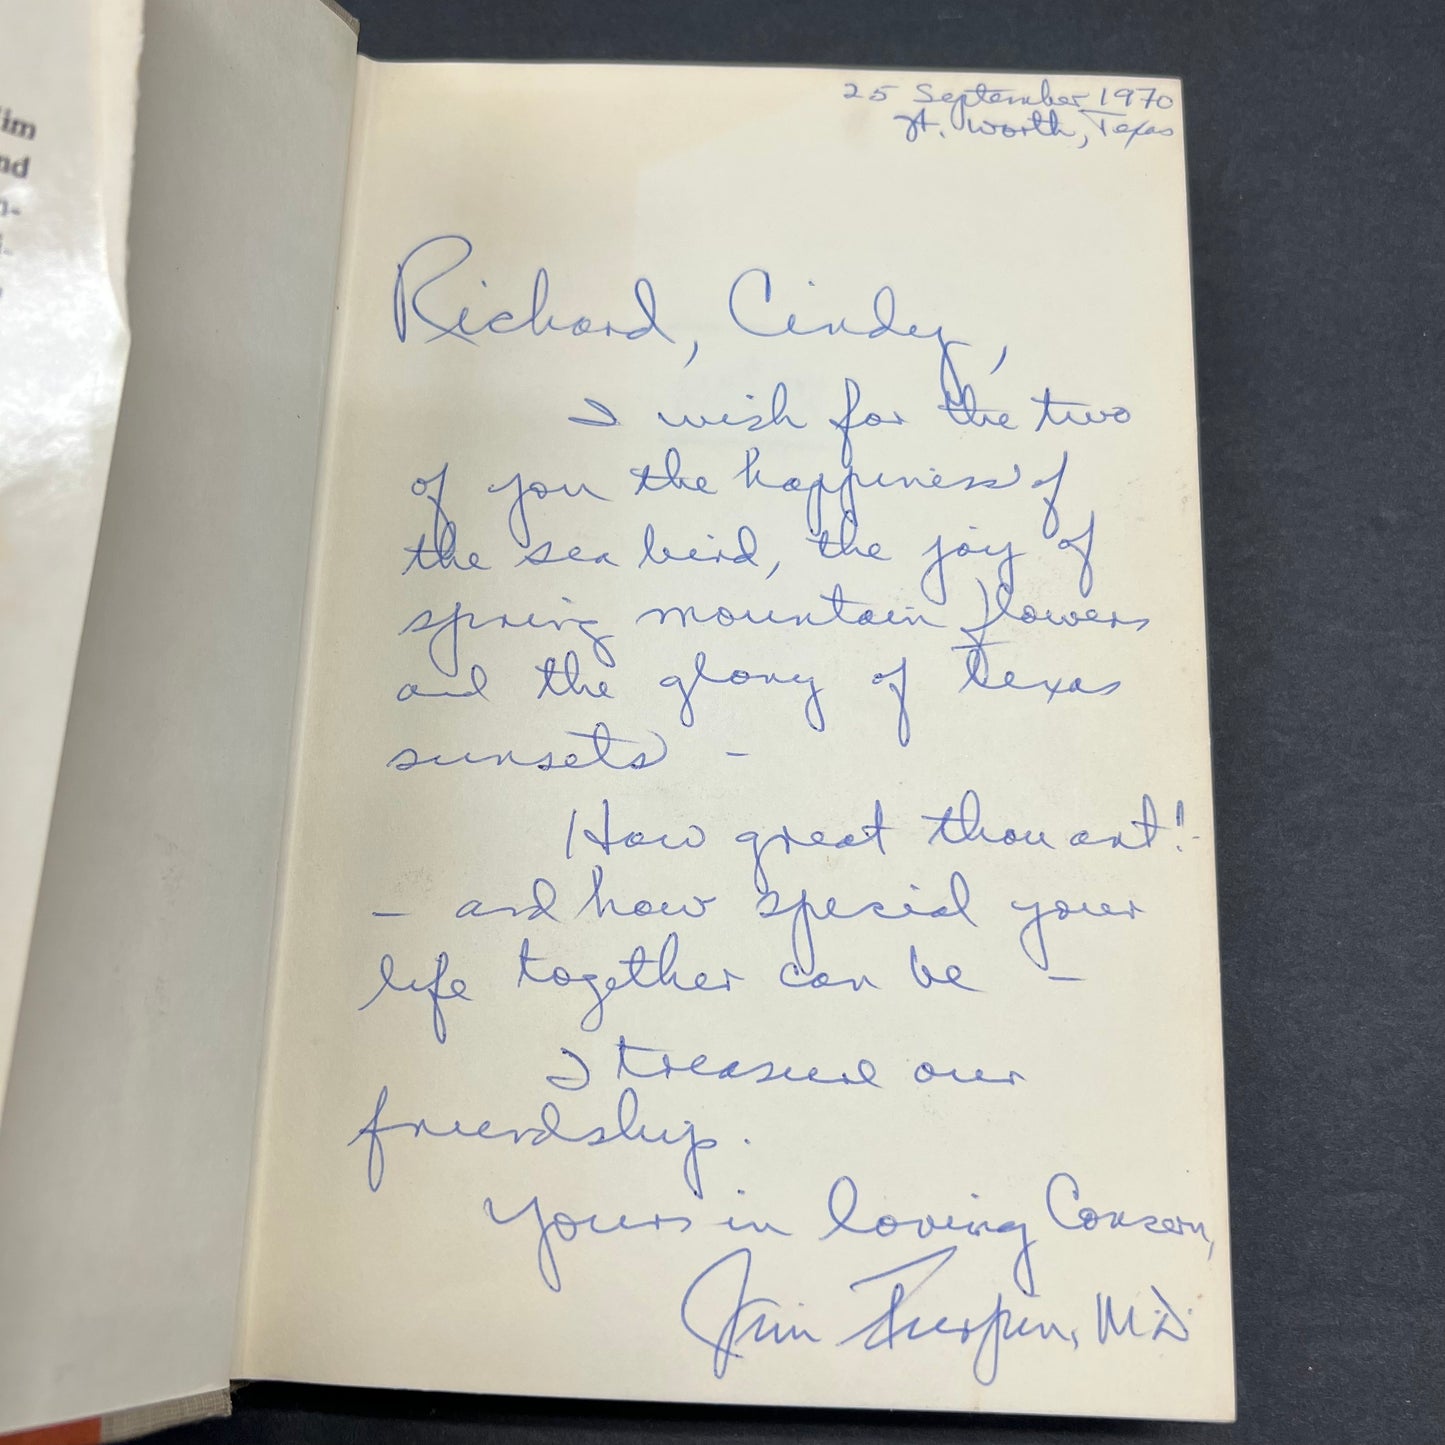 im
nd
n-
i-
25 September 1970
Ft. Worth, Texas
Richard, Cindy,
I wish for the two
of you the happiness of
the sea bird, the joy of
spring mountain flowers
and the glory of Texas
sunsets -
How great thou art! -
- and how special your
life together can be -
I treasure our
friendship.
Yours in loving Concern,
Jim Turpin, M.D.